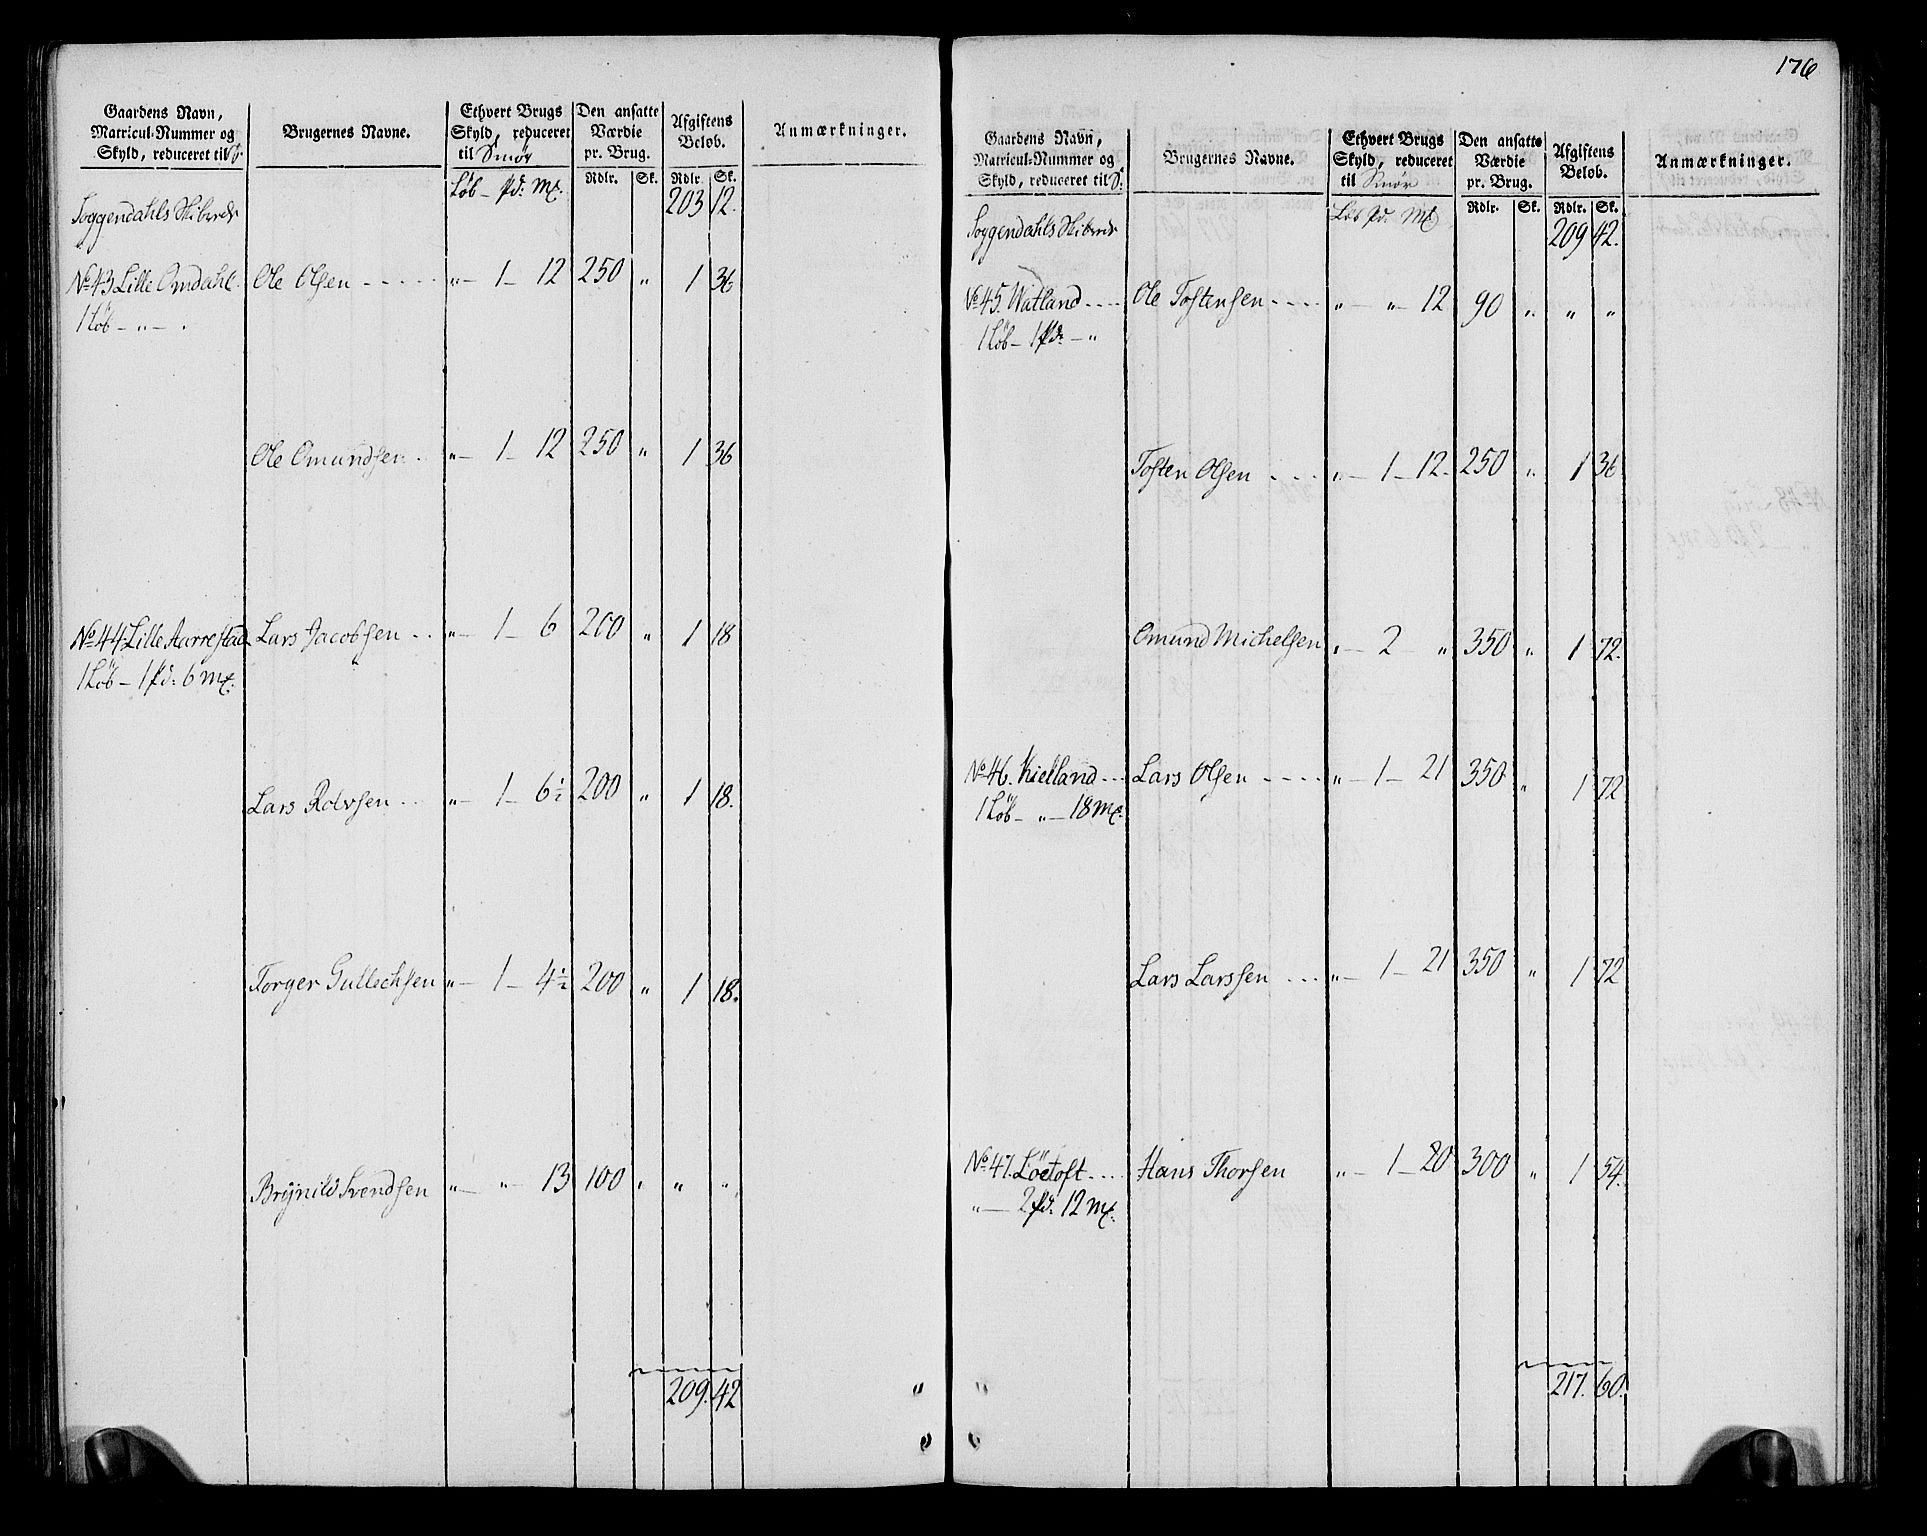 Gaardens Navn, Matricul-Nummer og Skyld, reduceret til S. | Brugernes Navne. | Ethvert Brugs Skyld, reduceret til Smør | Den ansatte Værdie pr. Brug. | Afgiftens Beløb. | Anmærkninger.
Løb – pd: mk. | Rdlr. | Sk. | Rdlr. | Sk.
Soggendahls Skibrede 203 12.
No 43 Lille Omdahl. Ole Olsen - - - - - „ – 1 – 12 250 „ 1 36
1 Løb – „ – .
Ole Omundsen . „ – 1 – 12 250 „ 1 36
No 44 Lille Aarrestad Lars Jacobsen . . „ – 1 – 6 200 „ 1 18
1 Løb – 1 pd: 6 mk.
Lars Rolvsen . . „ – 1 – 6½ 200 „ 1 18.
Torger Gullechsen „ – 1 – 4½ 200 „ 1 18.
Brÿnild Svendsen „ – „ – 13 100 „ „ „
209. 42
176
Gaardens Navn, Matricul-Nummer og Skyld, reduceret til S: | Brugernes Navne. | Ethvert Brugs Skyld, reduceret til Smør | Den ansatte Værdie pr. Brug. | Afgiftens Beløb. | Anmærkninger.
Løb pd: mk | Rdlr. | Sk. | Rdlr. | Sk.
Soggendahls Skibrede 209 42.
No 45. Watland - - - - Ole Tostensen - - - - „ – „ – 12 90 „ „ „
1 Løb – 1 pd: – „
Tosten Olsen - - - - „ – 1 – 12. 250 „ 1 36
Omund Michelsen „ – 2 – „ 350 „ 1 72.
No 46. Kielland - - - Lars Olsen - - - - - „ – 1 – 21 350 „ 1 72
1 Løb – „ – 18 mk.
Lars Larssen - - - - „ – 1 – 21 350 „ 1 72
No 47. Löetoft - - - - Hans Thorsen „ – 1 – 20 300 „ 1 54.
„ – 2 pd: 12 mk.
217. 60.